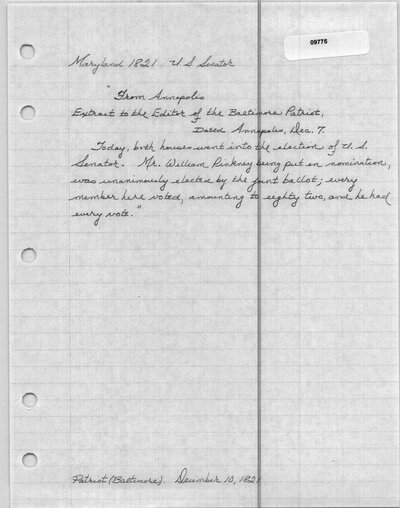 09775
Maryland 1821 U S Senator
"From Annapolis
Extract to the Editor of the Baltimore Patriot,
Dated Annapolis, Dec. 7.
Today, both houses went into the election of U. S.
Senator. Mr. William Pinkney being put in nomination,
was unanimously elected by the joint ballot; every
member here voted, amounting to eighty two, and he had
every vote."
Patriot (Baltimore). December 10, 1821